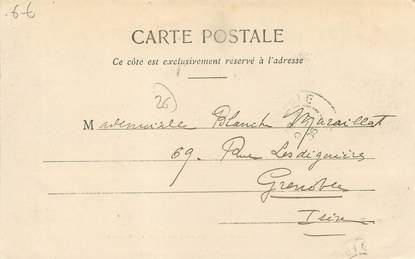 6€
CARTE POSTALE
Ce côté est exclusivement réservé à l'adresse
26
Mademoiselle Blanche Muraillat
69. Rue Lesdiguières
Grenoble
Isère